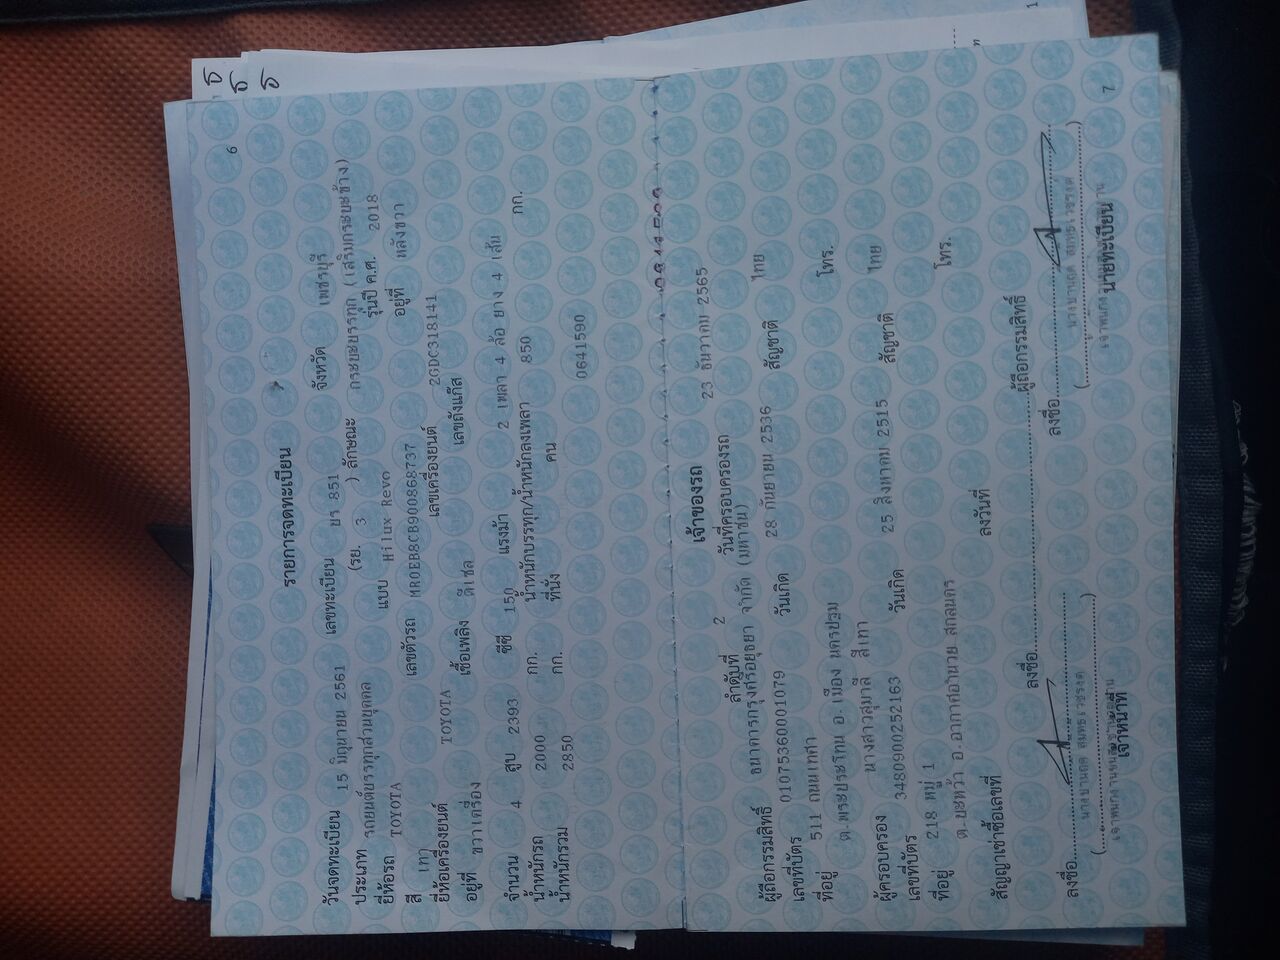 6
รายการจดทะเบียน
วันจดทะเบียน 15 มิถุนายน 2561 เลขทะเบียน ยร 851 จังหวัด เพชรบุรี
ประเภท รถยนต์บรรทุกส่วนบุคคล (รย. 3 ) ลักษณะ กระบะบรรทุก (เสริมกระบะข้าง)
ยี่ห้อรถ TOYOTA แบบ Hilux Revo รุ่นปี ค.ศ. 2018
สี เทา เลขตัวรถ MR0EB8CB900868737 อยู่ที่ หลังขวา
ยี่ห้อเครื่องยนต์ TOYOTA เลขเครื่องยนต์ 2GDC318141
อยู่ที่ ขวาเครื่อง เชื้อเพลิง ดีเซล เลขถังแก๊ส
จำนวน 4 สูบ 2393 ซีซี 150 แรงม้า 2 เพลา 4 ล้อ ยาง 4 เส้น
น้ำหนักรถ 2000 กก. น้ำหนักบรรทุก/น้ำหนักลงเพลา 850 กก.
น้ำหนักรวม 2850 กก. ที่นั่ง คน
0641590
เจ้าของรถ
ลำดับที่ 2 วันที่ครอบครองรถ 23 ธันวาคม 2565
ผู้ถือกรรมสิทธิ์ ธนาคารกรุงศรีอยุธยา จำกัด (มหาชน)
เลขที่บัตร 0107536001079 วันเกิด 28 กันยายน 2536 สัญชาติ ไทย
ที่อยู่ 511 ถนนเทศา
ต.พระประโทน อ.เมือง นครปฐม โทร.
ผู้ครอบครอง นางสาวสุมาลี สีเทา
เลขที่บัตร 3480900252163 วันเกิด 25 สิงหาคม 2515 สัญชาติ ไทย
ที่อยู่ 218 หมู่ 1
ต.บะหว้า อ.อากาศอำนวย สกลนคร โทร.
สัญญาเช่าซื้อเลขที่ ลงวันที่
ลงชื่อ ผู้ถือกรรมสิทธิ์
ลงชื่อ ลงชื่อ
( ) ( )
เจ้าหน้าที่ นายทะเบียน
7